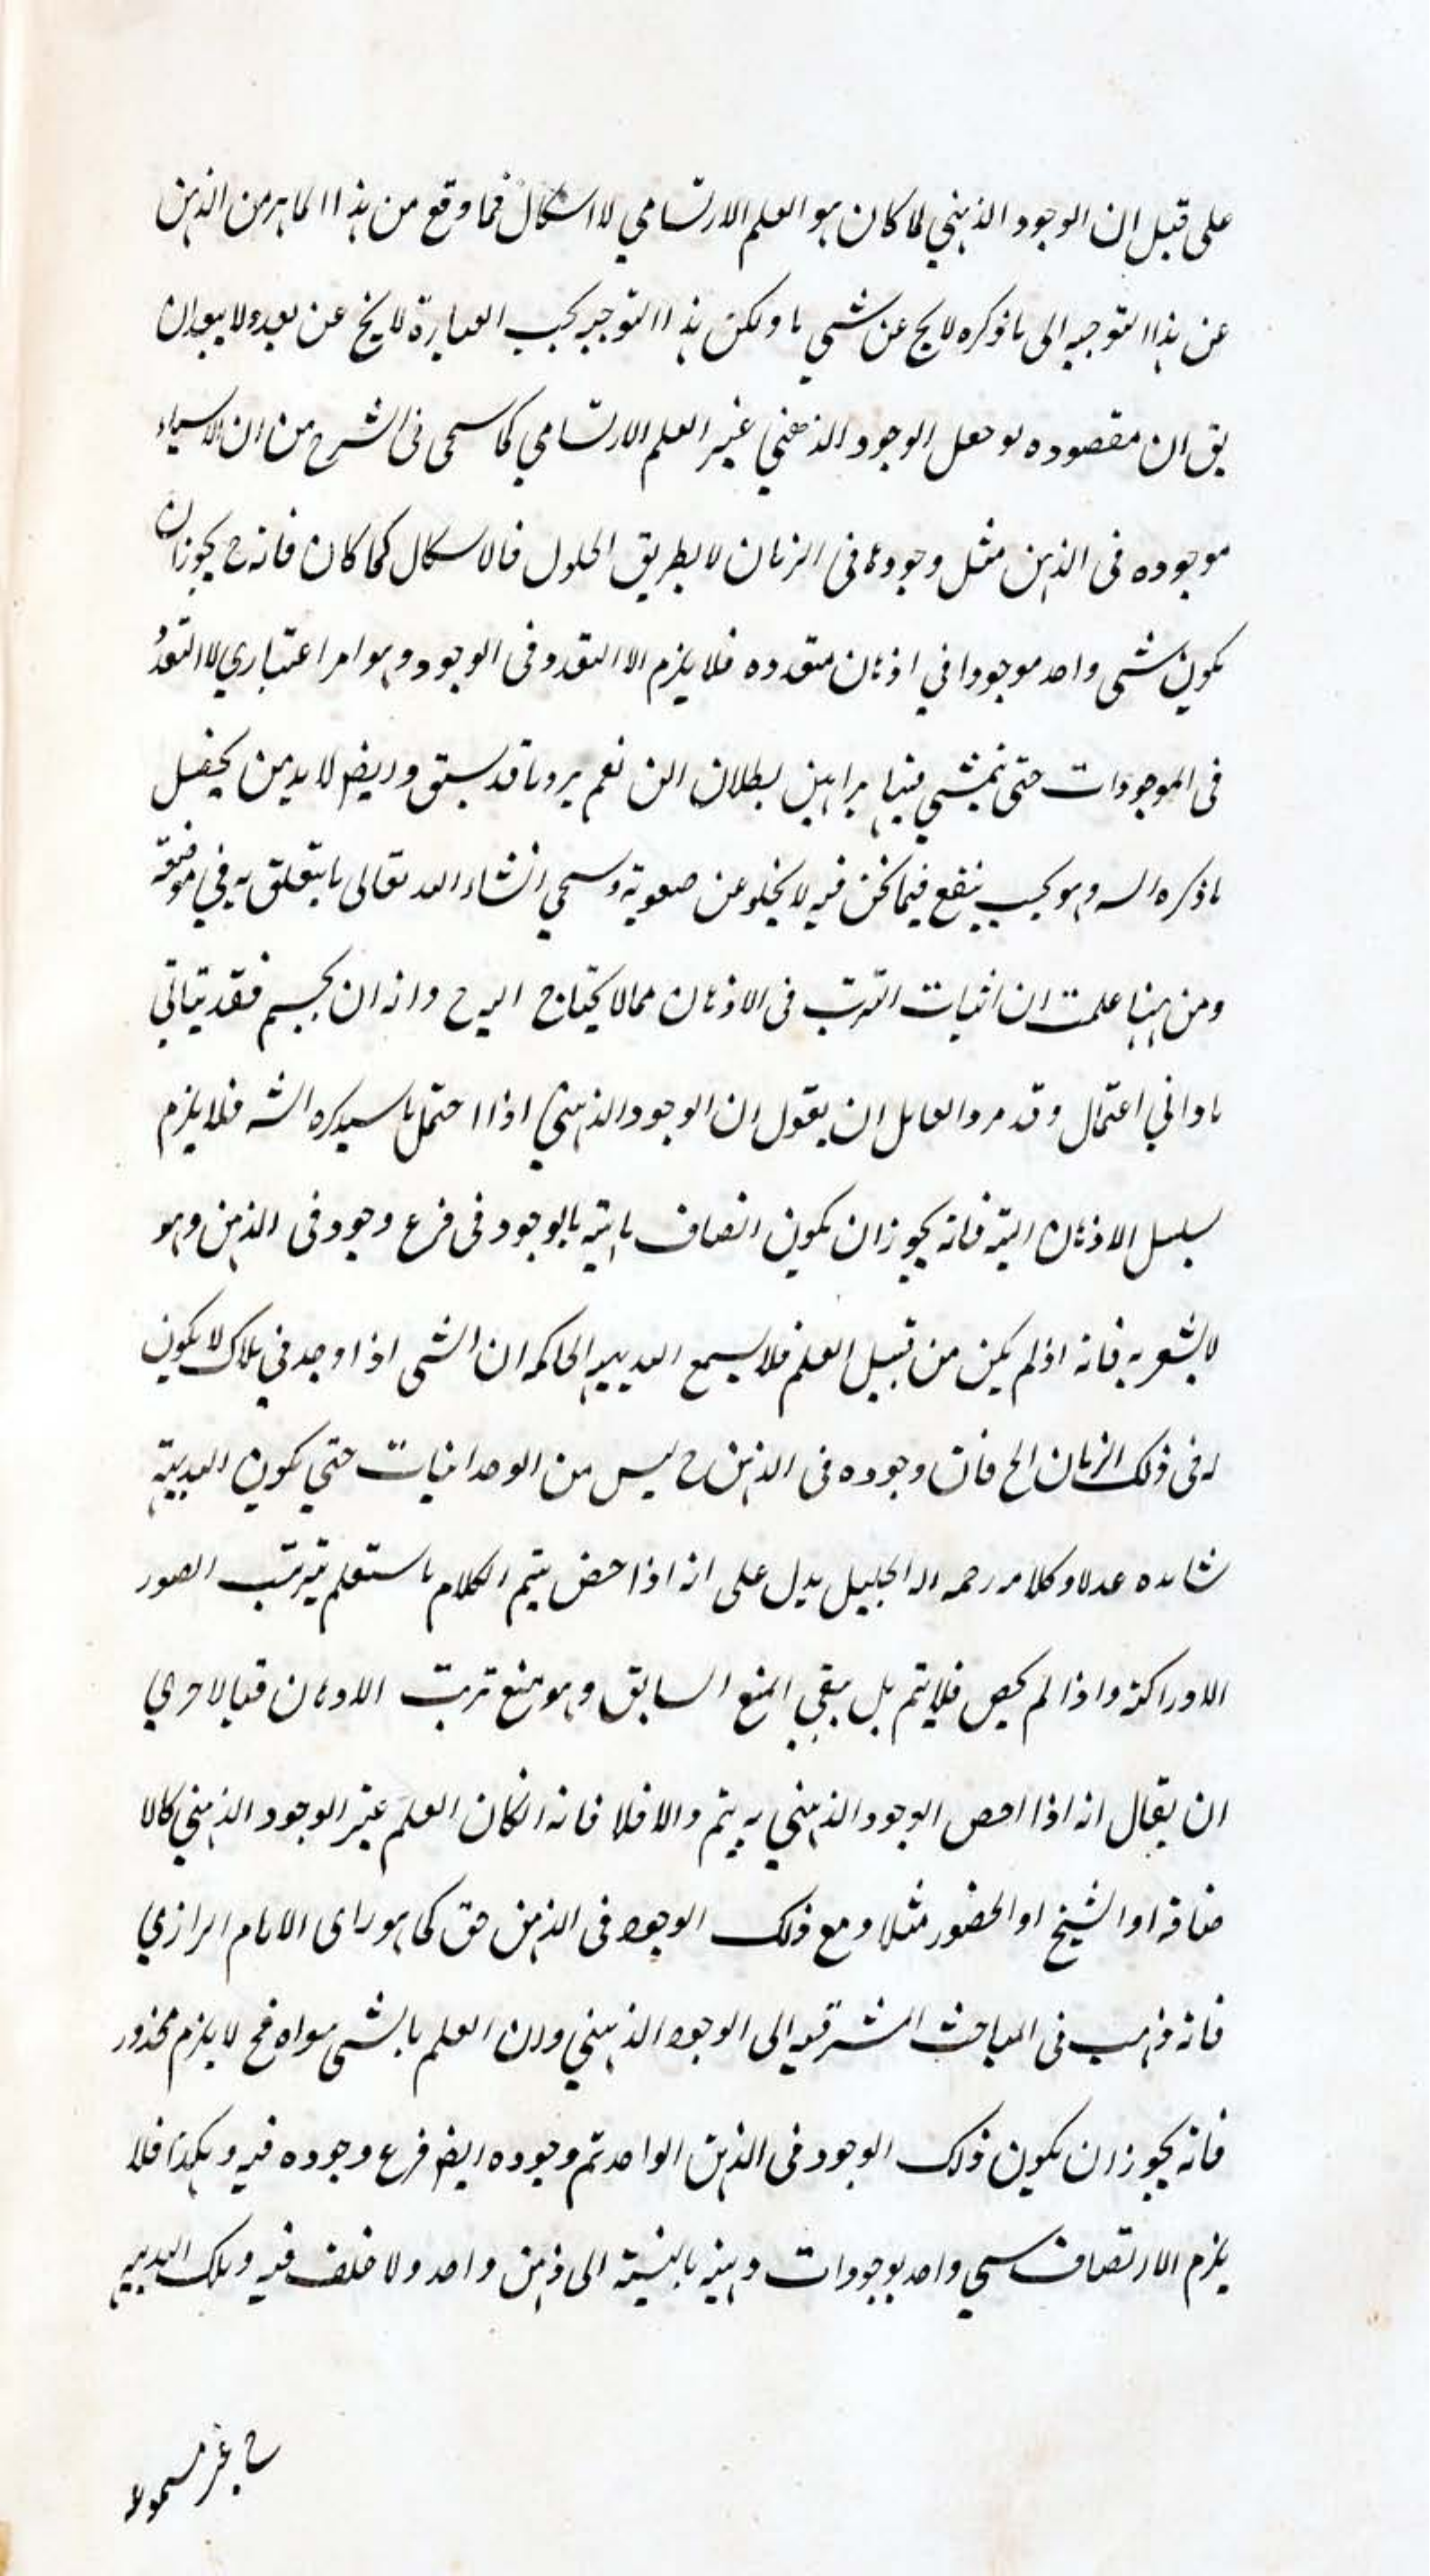 على قبل ان الوجود الذهني لما كان هو العلم الارتسامي لا اشكال فما وقع من هذا الماهر من الذهن
عن هذا التوجيه الى ما ذكره لا يخ عن شي ما ولكن هذا التوجيه بحسب العبارة لا يخ عن بعد ولا يبعد ان
يق ان مقصوده لو جعل الوجود الذهني غير العلم الارتسامي كما سيجي في الشرح من ان الاشياء
موجوده في الذهن مثل وجودها في الزمان لا بطريق الحلول فالاشكال كما كان فانه ح يجوز ان
يكون شي واحد موجودا في اذهان متعدده فلا يلزم الا التعدد في الوجود وهو امر اعتباري لا التعدد
في الموجودات حتى يتمشي فيها براهين بطلان الن نعم يرد ما قد سبق وايض لا بد من
ما ذكره الس وهو بحيث ينفع فيما نحن فيه لا يخلو عن صعوبة وسيجي انشاء الله تعالى ما يتعلق به في موضعه
ومن ههنا علمت ان اثبات الترتب في الاذهان مما لا يحتاج اليه ح وانه ان يجسم فقد يتاتي
بادني اعتمال وقد مر والقايل ان يقول ان الوجود الذهني اذا احتمل ما سيذكره الشه فلا يلزم
سلسل الاذهان البته فانه يجوز ان يكون اتصاف ماهيته بالوجود في فرع وجود في الذهن وهو
لا يشعر به فانه اذ لم يكن من قبيل العلم فلا يسمع البديهيه الحاكمه ان الشي اذا وجد في لا يكون
له في ذلك الزمان الخ فان وجوده في الذهن ح ليس من الوحدانيات حتي يكون البديهية
شاهده عدلا وكلامه رحمه اله الجليل يدل على انه اذا خص يتم الكلام باستعلم بترتب الصور
الادراكية واذا لم يخص فلا يتم بل بقي المنع السابق وهو منع ترتب الاذهان فبالاحري
ان يقال انه اذا اخص الوجود الذهني به يتم والا فلا فانه انكان العلم غير الوجود الذهني كالا
ضافة او الشبح او الحضور مثلا ومع ذلك الوجود في الذهن حق كما هو راى الامام الرازي
فانه ذهب في المباحث المشرقيه الى الوجود الذهني وان العلم بالشي سواه فح لا يلزم محذور
فانه يجوز ان يكون ذلك الوجود في الذهن الواحد ثم وجوده ايض فرع وجوده فيه وهكذا فلا
يلزم الا اتصاف شي واحد بوجودات ذهنيه بالنسبة الى ذهن واحد ولا خلف فيه وتلك البديهيه
ح غير مسموعه